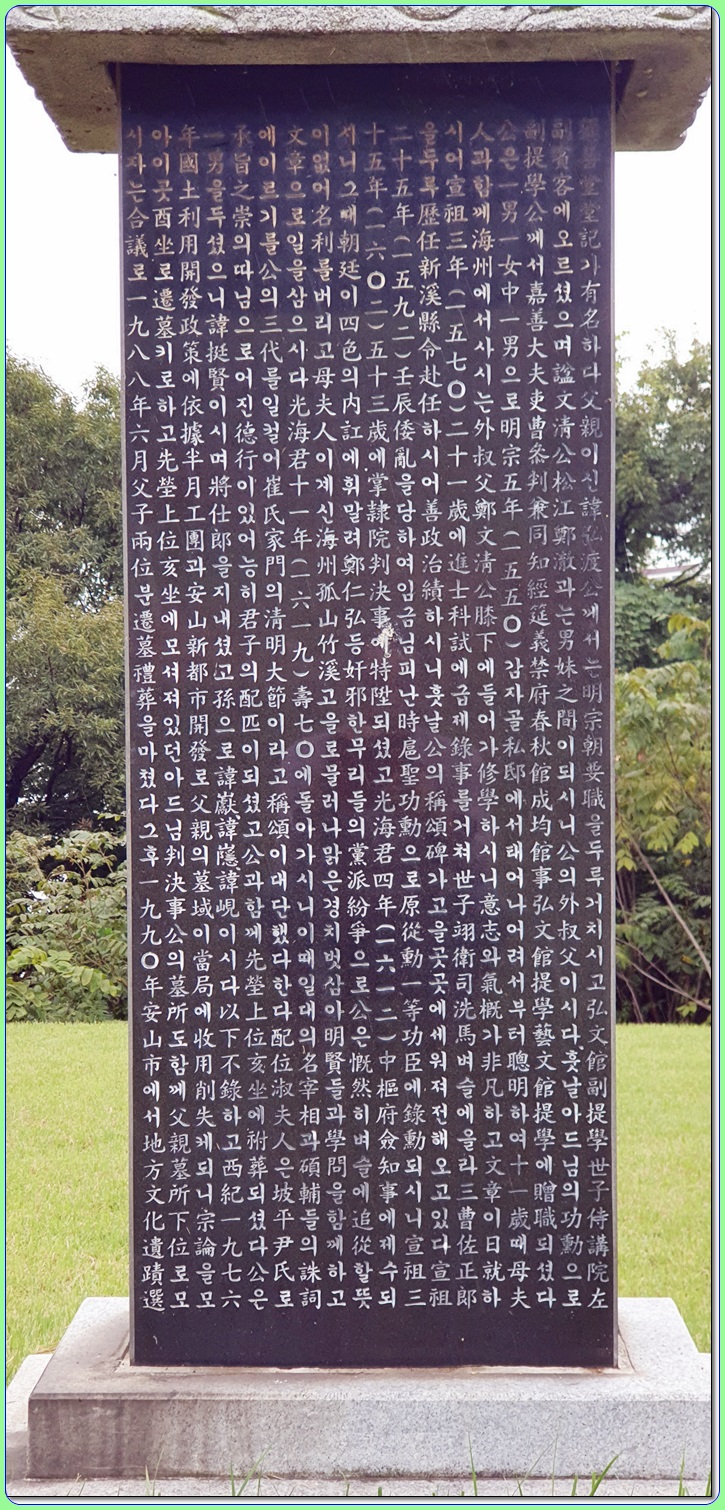 善堂堂記가有名하다父親이신諱弘渡公께서는明宗朝要職을두루거치시고弘文館副提學世子侍講院左
副賓客에오르셨으며諡文淸公松江鄭澈과는男妹之間이되시니公의外叔父이시다훗날아드님의功勳으로
副提學公께서嘉善大夫吏曹叅判兼同知經筵義禁府春秋館成均館事弘文館提學藝文館提學에贈職되셨다
公은一男一女中一男으로明宗五年(一五五〇)감자골私邸에서태어나어려서부터聰明하여十一歲때母夫
人과함께海州에서사시는外叔父鄭文淸公膝下에들어가修學하시니意志와氣槪가非凡하고文章이日就하
시어宣祖三年(一五七〇)二十一歲에進士科試에급제錄事를거쳐世子翊衛司洗馬벼슬에올라三曹佐正郎
을두루歷任新溪縣令赴任하시어善政治績하시니훗날公의稱頌碑가고을곳곳에세워져전해오고있다宣祖
二十五年(一五九二)壬辰倭亂을당하여임금님피난時扈聖功勳으로原從勳一等功臣에錄勳되시니宣祖三
十五年(一六〇二)五十三歲에掌隷院判決事에特陞되셨고光海君四年(一六一二)中樞府僉知事에제수되
셔니그때朝廷이四色의內訌에휘말려鄭仁弘等奸邪한무리들의黨派紛爭으로公은慨然히벼슬에追從할뜻
이없어名利를버리고母夫人이계신海州孤山竹溪고을로물러나맑은경치벗삼아明賢들과學問을함께하고
文章으로일을삼으시다光海君十一年(一六一九)壽七〇에돌아가시니이때일대의名宰相과碩輔들의誄詞
에이르기를公의三代를일컬어崔氏家門의淸明大節이라고稱頌이대단했다한다配位淑夫人은坡平尹氏로
承旨之崇의따님으로어진德行이있어능히君子의配匹이되셨고公과함께先塋上位亥坐에祔葬되셨다公은
一男을두셨으니諱挺賢이시며將仕郎을지내셨고孫으로諱巚諱諱峴이시다以下不錄하고西紀一九七六
年國土利用開發政策에依據半月工團과安山新都市開發로父親의墓域이當局에收用削失케되니宗論을모
아이곳酉坐로遷墓키로하고先塋上位亥坐에모셔져있던아드님判決事公의墓所도함께父親墓所下位로모
시자는合議로一九八八年六月父子兩位분遷墓禮葬을마쳤다그후一九九〇年安山市에서地方文化遺蹟選